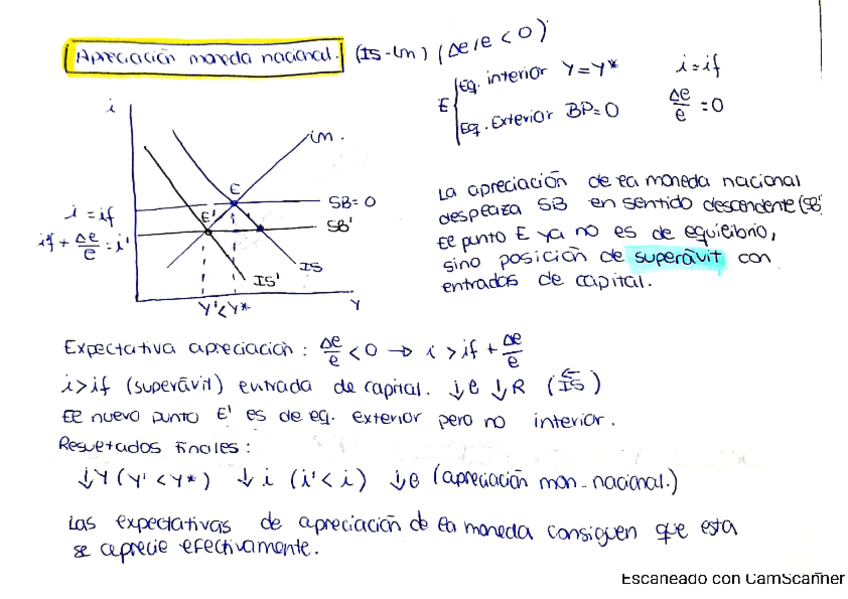 Apreciación moneda nacional. (IS-LM) (Δe/e < 0)
E { Eq. interior Y=Y* i=if
Eq. Exterior BP=0 Δe/e =0
i
LM.
E
E'
SB=0
SB'
i = if
if + Δe/e = i'
IS
IS'
Y'<Y*
Y
La apreciación de la moneda nacional
desplaza SB en sentido descendente (SB'
El punto E ya no es de equilibrio,
sino posición de superávit con
entradas de capital.
Expectativa apreciación : Δe/e < 0 → i > if + Δe/e
i>if (superávit) entrada de capital. ↓e ↓R (←IS)
El nuevo punto E' es de eq. exterior pero no interior.
Resultados finales :
↓Y (Y' < Y*) ↓i (i' < i) ↓e (apreciación mon. nacional.)
Las expectativas de apreciación de la moneda consiguen que esta
se aprecie efectivamente.
Escaneado con CamScanner